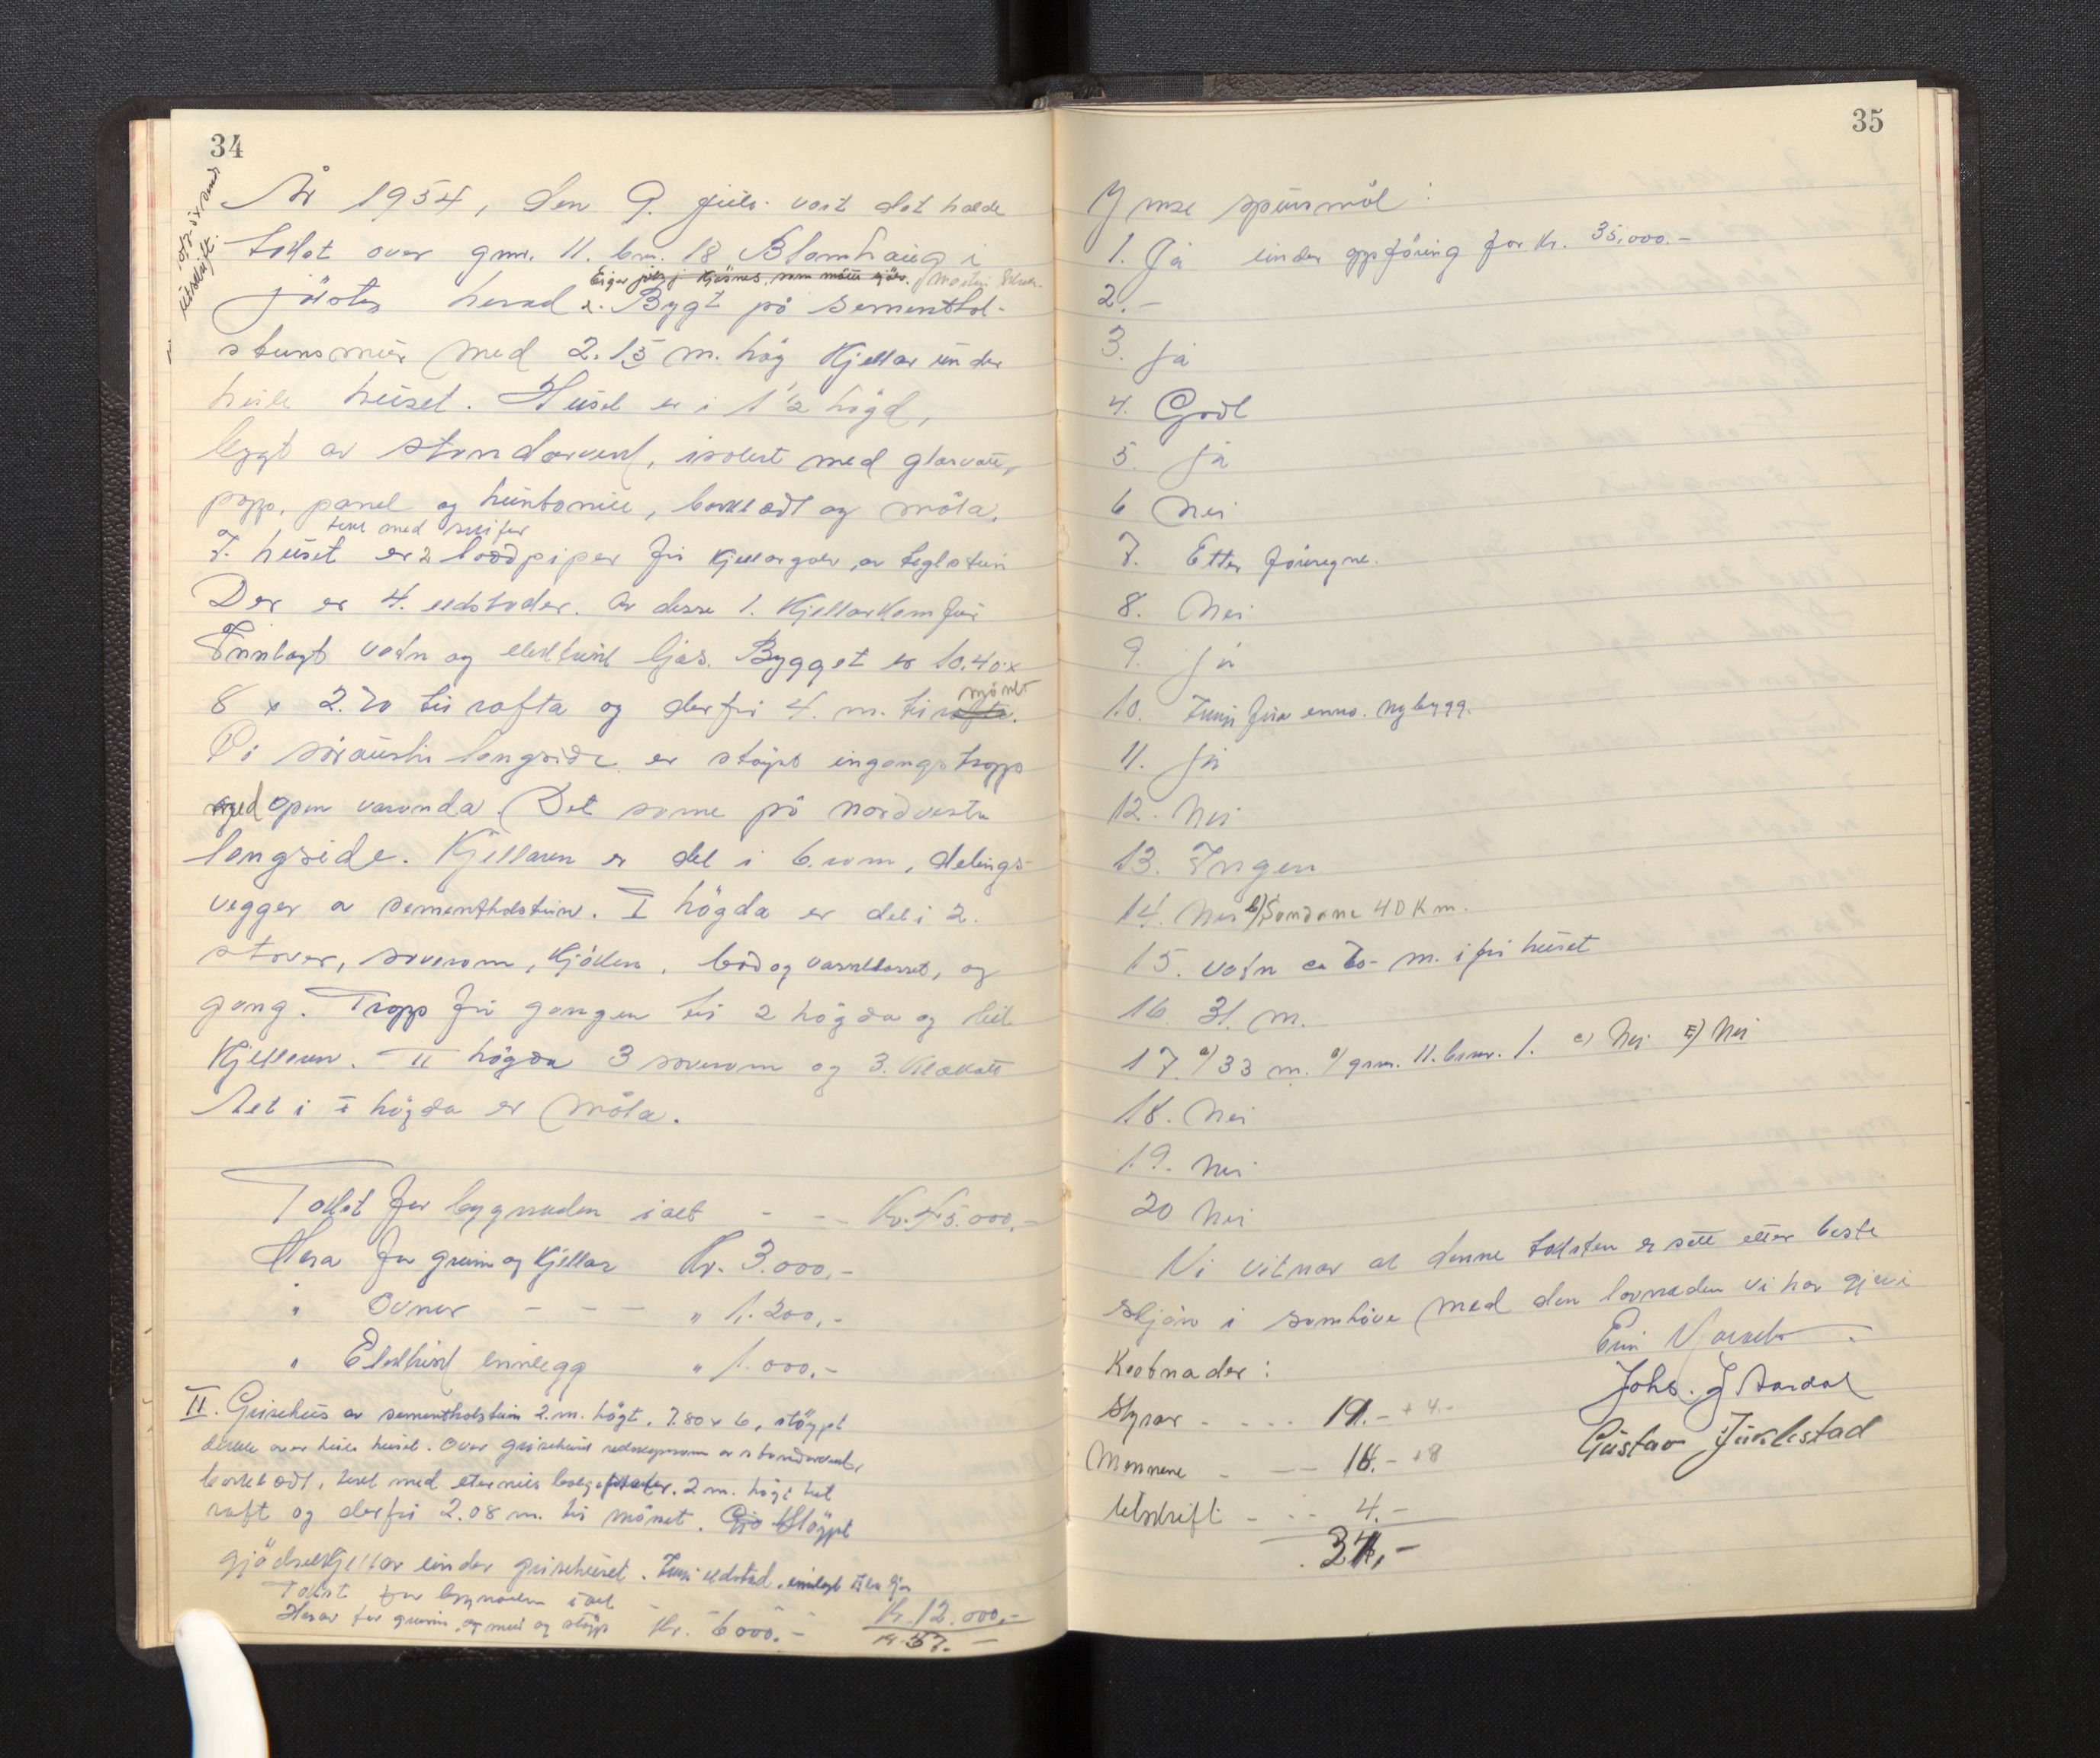 34
År 1954, den 9. juli. vart det halde
takst over gnr. 11. bnr. 18 Blomhaug i
Eigar
Jölster herad. Bygt på sementhol-
steinsmur med 2.15 m. høg Kjellar under
heile huset. Huset er i 1½ högd,
bygt av standarverk, isolert med glasvatt,
papp, panel og huntonitt, bordklædt og måla,
tekt med skifer
I huset er 2 brodpiper frå Kjellargolv, av teglstein
Der er 4. eldstader. Av desse 1. Kjellarkomfur
Innlagt vatn og elektrisk ljos. Bygget er 10.40 x
mönet
8 x 2.70 til rafta og derfrå 4. m. til rafta.
På söraustre langside er støypt ingangstrapp
med open varanda. Det same på nordvestre
langside. Kjellaren er delt i 6. rom, delings-
vegger av sementholstein. I högda er delt i 2.
stover, soverom, Kjöken, bad og vassklosset, og
gang. Trapp frå gangen til 2 högda og til
Kjellaren. II högda 3 soverom og 3. klekott
Alt i I högda er måla.
Takst for bygnaden i alt - - - Kr. 45.000,-
Herav for grunn og Kjellar Kr. 3.000,-
" Ovner - - - " 1.200,-
" Elektrisk innlegg " 1.000,-
II. Grisehus av sementholstein 2. m. högt, 7.80 x 6, støypt
dekke over heile huset. Over grisehuset reidskapsrom av standarverk,
bordklædt, tekt med eternitt bølgeplater. 2 m. högt til
raft og derfrå 2.08 m. til mönet. Støypt
gjødselkjellar under grisehuset. Inni eldstad, innlagt el. ljos
Takst for bygnaden i alt - - - Kr. 12.000,-
Herav for grunn, og mur og støyp Kr. 6000,-
57.-
35
Ymse spursmål:
1. Ja under oppföring for Kr. 35.000.-
2. -
3. Ja
4. Godt
5. Ja
6 Nei
7. Etter foresegne.
8. Nei
9. Ja
10. enno. nybygg.
11. Ja
12. Nei
13. Ingen
14. Nei b) Sandane 40 Km.
15. vatn ca m. ifrå huset
16. 31. m.
17. a) 33 m. b) gnr. 11. bnr. 1. c) Nei E) Nei
18. Nei
19. Nei
20 Nei
Vi vitnar at denne taksten er sett etter beste
skjön i samhöve med den lovnaden vi har gjevi
Johs. J Aardal
Gustav Jüklestad
Kostnader:
Styrar - - - - 19.- + 4.-
Mennene - - - 18.- + 8
Utskrift - - - 4.-